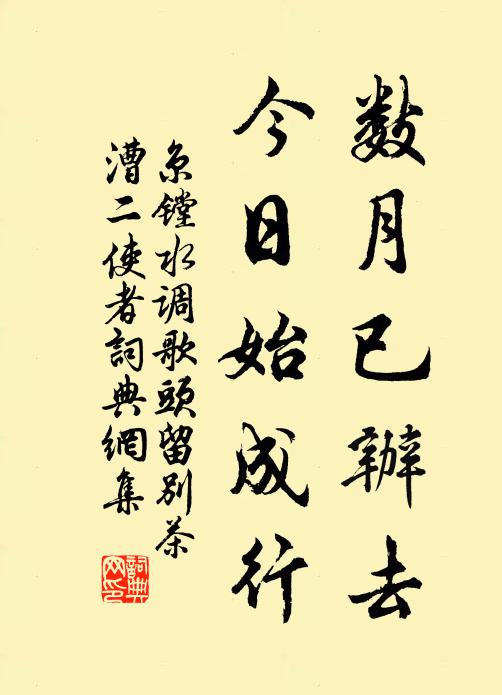 数月已辦去
今日始成行
京镗水调歌頭留别茶
漕二使者詞典網集
詞典
网印